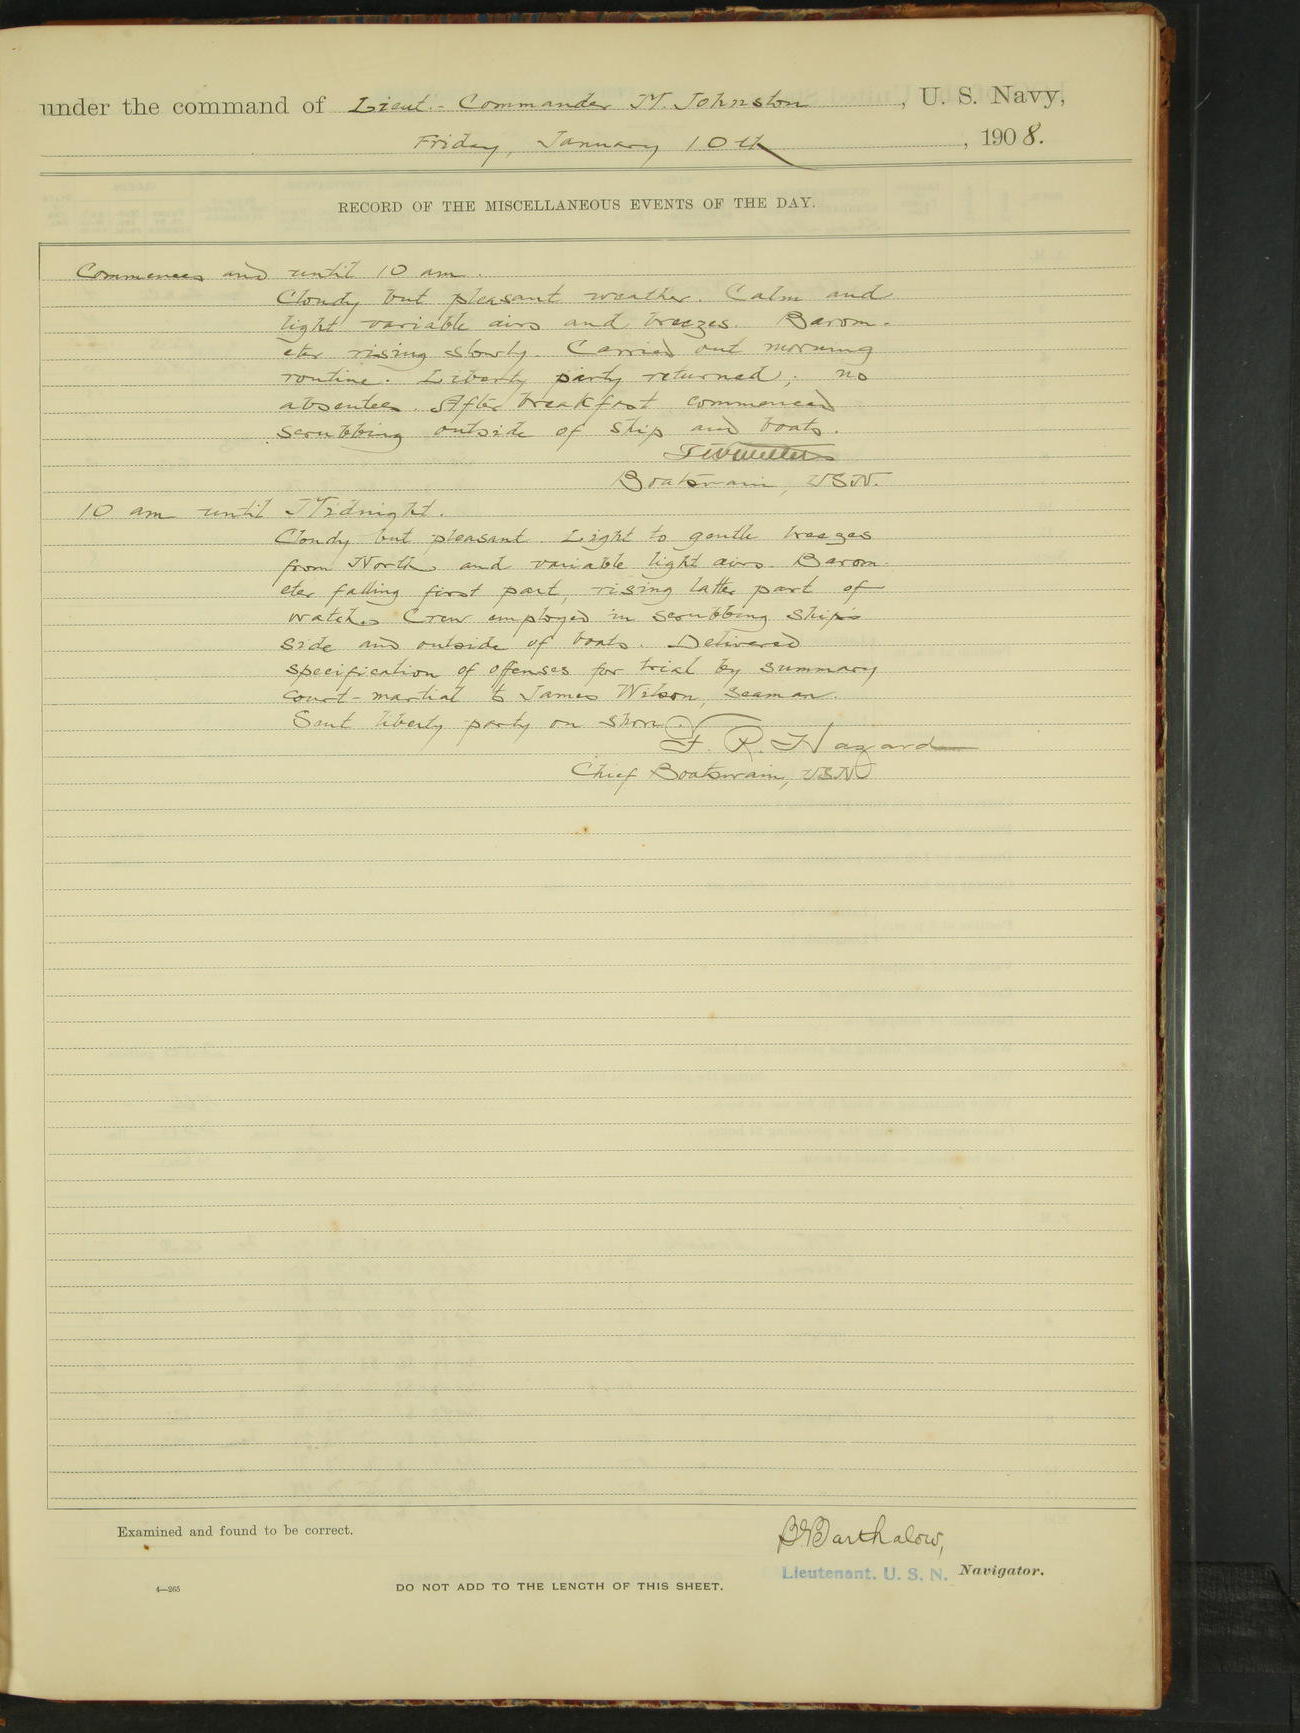 under the command of Lieut.- Commander M. Johnston, U. S. Navy,
Friday, January 10th, 1908.
RECORD OF THE MISCELLANEOUS EVENTS OF THE DAY.
Commences and until 10 am.
Cloudy but pleasant weather. Calm and
light variable airs and breezes. Barom-
eter rising slowly. Carried out morning
routine. Liberty party returned; no
absentees. After breakfast commenced
scrubbing outside of ship and boats.
Boatswain, USN.
10 am until Midnight.
Cloudy but pleasant. Light to gentle breezes
from North and variable light airs. Barom-
eter falling first part, rising latter part of
watch. Crew employed in scrubbing ship's
side and outside of boats. Delivered
specification of offenses for trial by summary
court-martial to James Wilson, seaman.
Sent liberty party on shore.
F. R. Hazard
Chief Boatswain, USN
Examined and found to be correct.
Barthalow,
Lieutenant. U. S. N. Navigator.
4—265
DO NOT ADD TO THE LENGTH OF THIS SHEET.